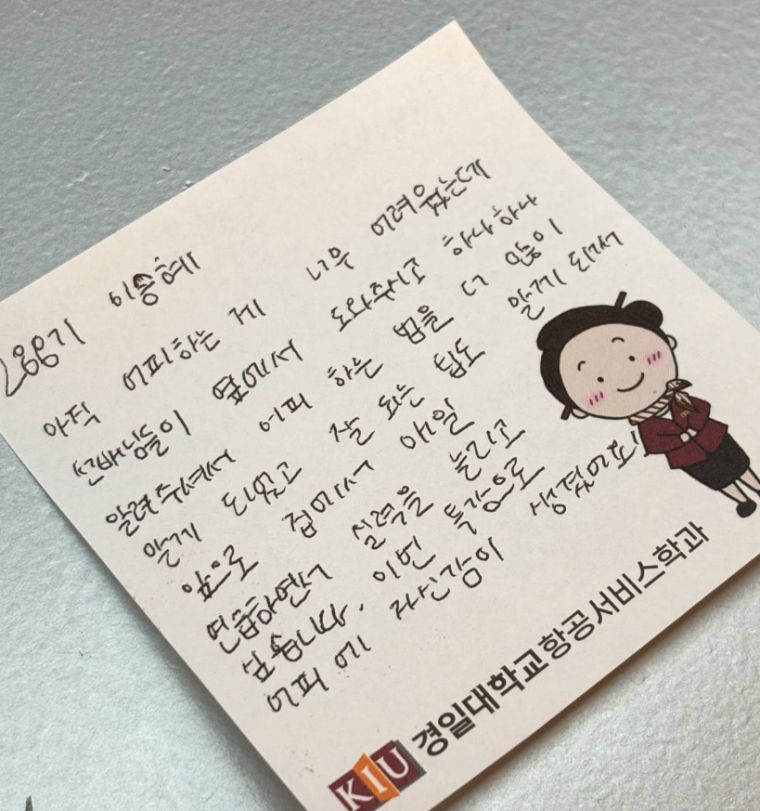 이승혜
아직 어피하는 게 너무 어려웠는데
선배님들이 옆에서 도와주시고 하나하나
알려주셔서 어피 하는 법을 더 많이
알게 되었고 잘 되는 팁도 알게 되서
앞으로 집에서 매일
연습하면서 실력을 늘리고
싶습니다. 이번 특강으로
어피에 자신감이 생겼어요!
KIU 경일대학교항공서비스학과